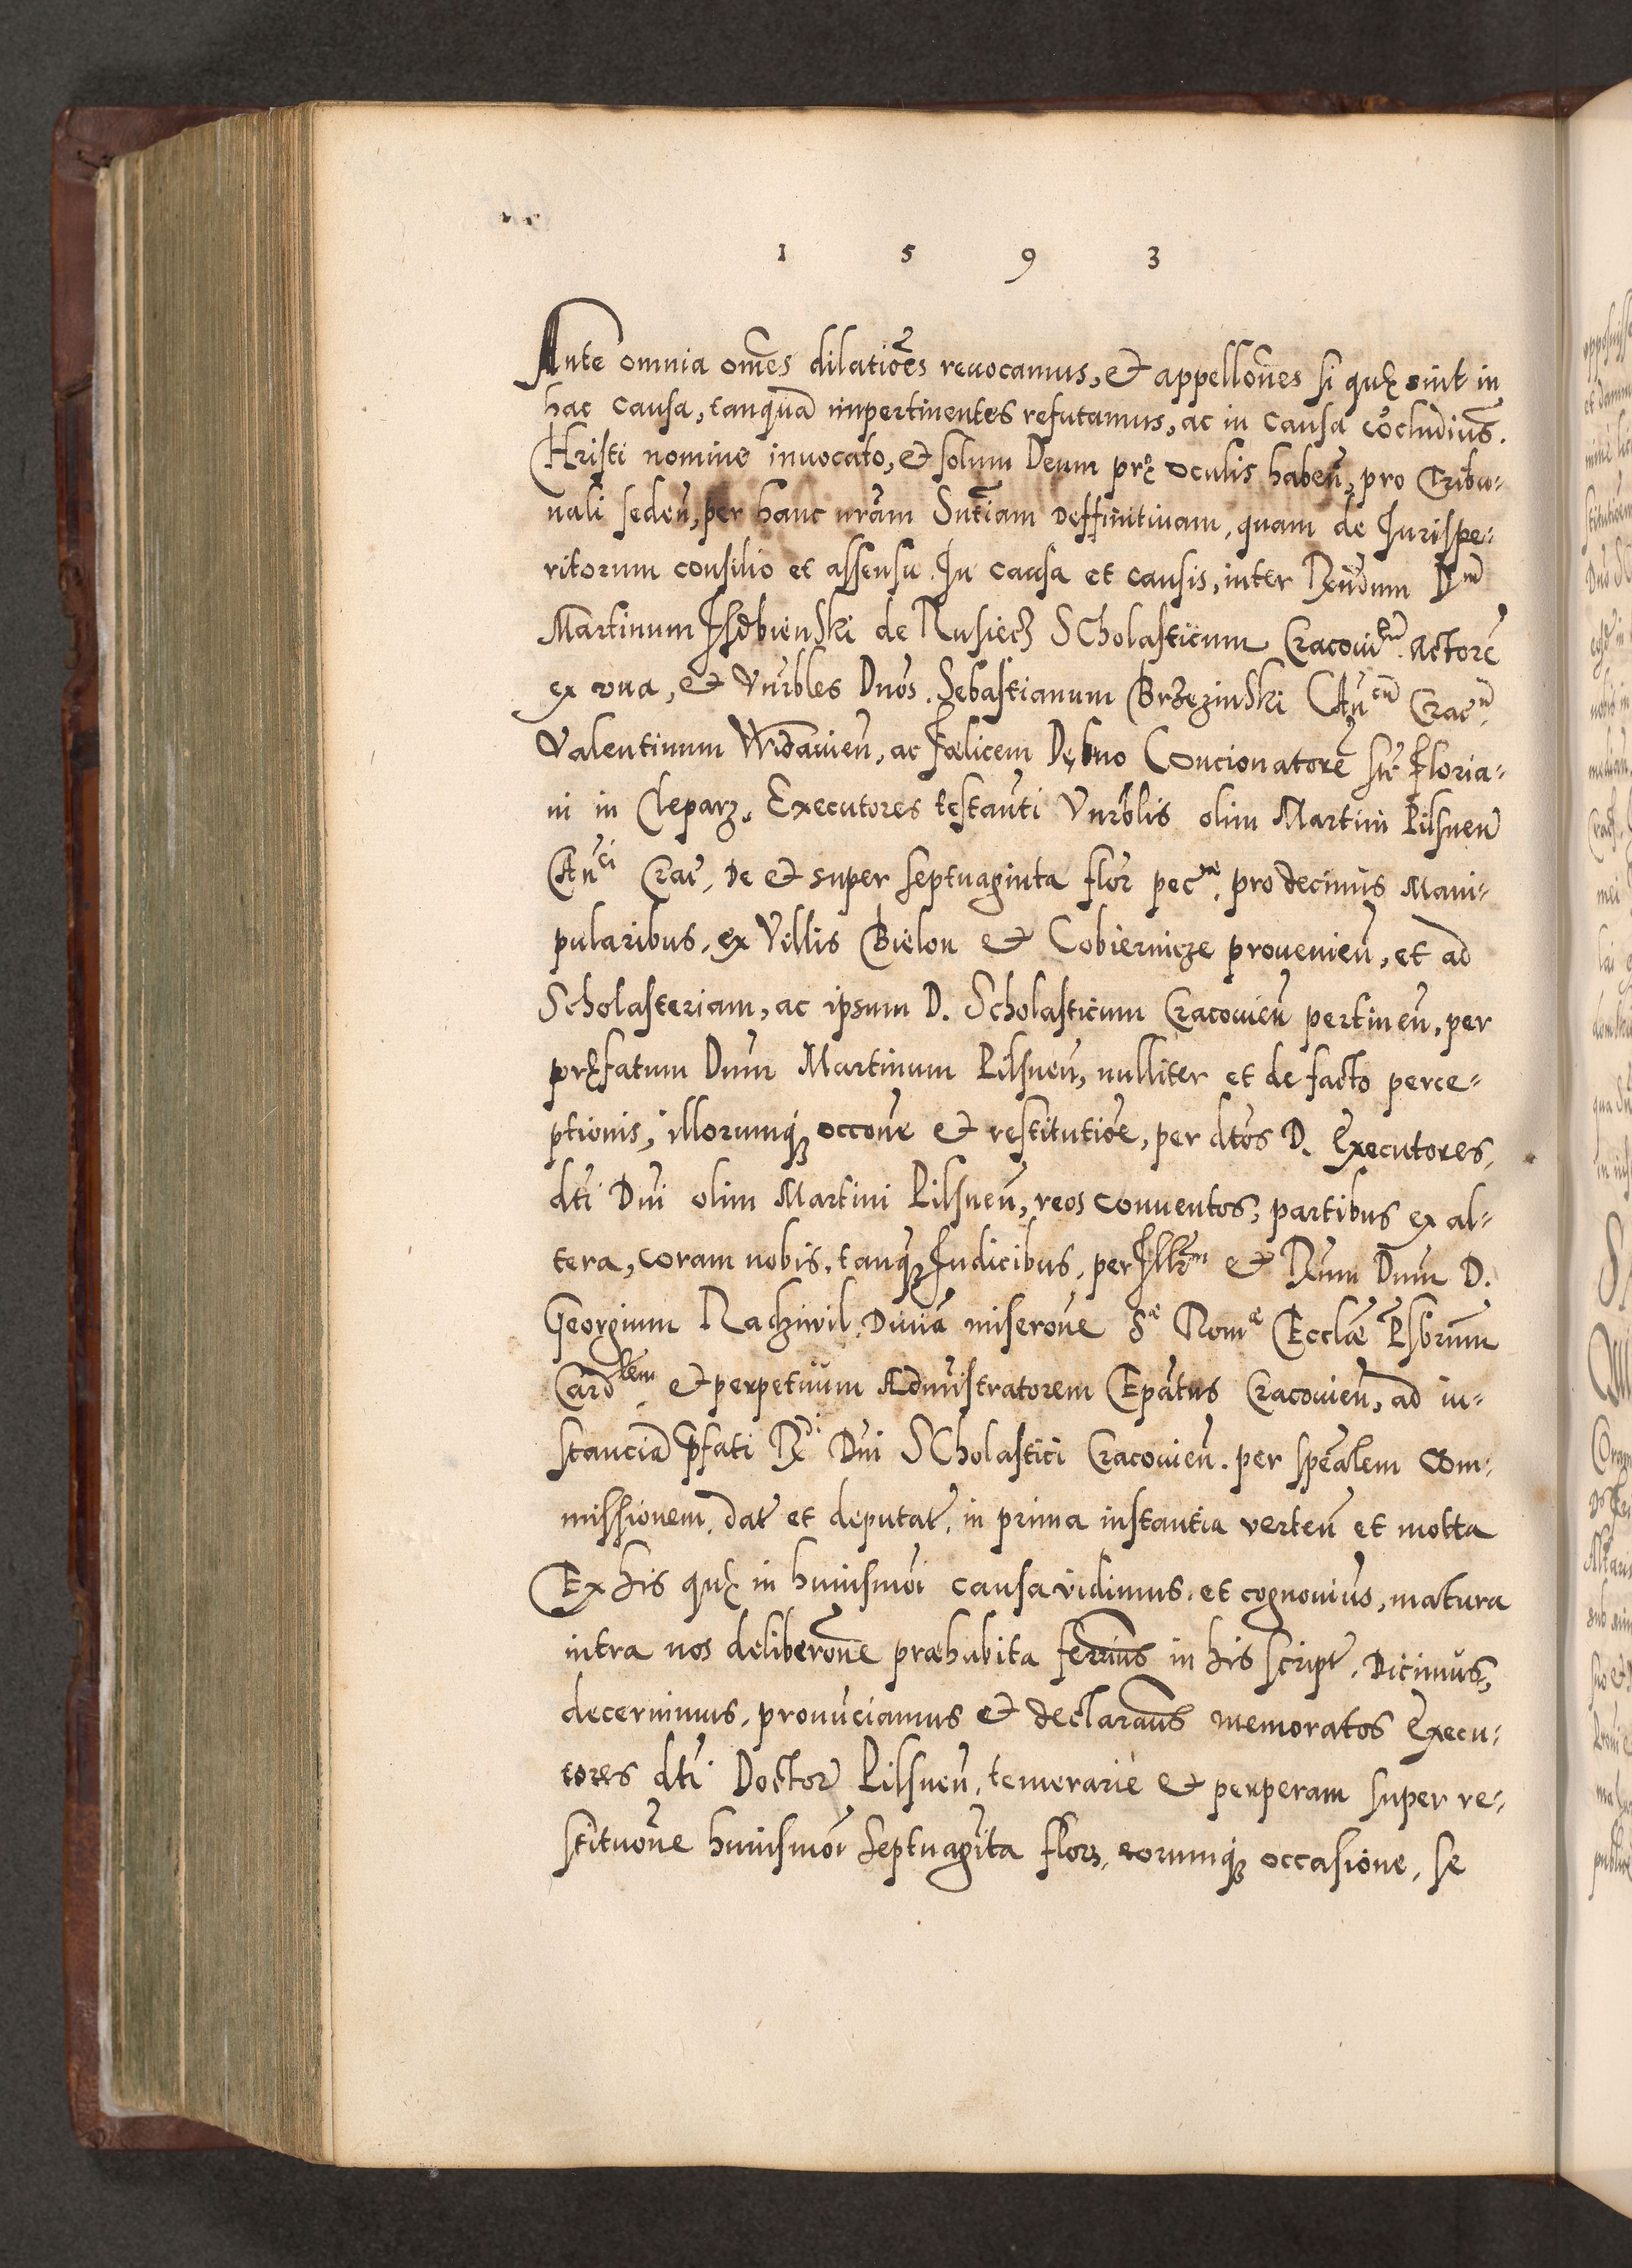 1 5 9 3
Ante omnia om̃es dilatiões reuocamus, et appellões si quę sint in
hac causa, tanquã impertinentes refutamus, ac in causa cõcludimus.
CHristi nomine inuocato, et solum Deum prę oculis habeñ, pro Tribu-
nali sedeñ, per hanc nrãm Snťiam deffinitiuam, quam de Jurispe-
ritorum consilio et assensu. In causa et causis, inter Rñdum Dnm
Martinum Isdbienski de Rusiecz Scholasticum Cracouieñ. Actorẽ
ex vna, et Vnrbles Dnos. Sebastianum Brzezinski CAñcũ Cracñ.
Valentinum Widauieñ, ac Fœlicem Dębno Concionatorẽ sti Floria-
ni in Cleparz. Executores testãnti Vnrblis olim Martini Pilsneñ
CAñci Crac. de et super septuaginta flor pecæ. pro decimis mani-
pularibus, ex Villis Bielon et Cobiernicze prouenieñ, et ad
Scholasteriam, ac ipsum D. Scholasticum Cracouieñ pertineñ, per
pręfatum Dnm Martinum Pilsneñ, nulliter et de facto perce-
ptionis, illorumq̃ occõne et restitutiõe, per dtõs D. Executores,
dti Dni olim Martini Pilsneñ, reos conuentos, partibus ex al-
tera, coram nobis, tanq̃ Judicibus, per Illrm et Rñum Dnm D.
Georgium Radziwil, Diuiã miserõne Sæ Romæ Ecclæ Pṡbrum
Cardlem et perpetuum Admistratorem Epãtus Cracouieñ, ad in-
stanciã pfati Rdi Dni Scholastici Cracouieñ. per speãlem Com-
missionem dat et deputat, in prima instantia verteñ et motta
Ex his quę in huiusmoi causa vidimus et cognouimus, matura
intra nos deliberõne præhabita ferimus in his script. Dicimus,
decernimus, pronũciamus et declaramus memoratos Execu-
tores dti Doctor Pilsneñ, temerariè et perperam super re-
stituõne huiusmoi Septuagĩta flor, eorumq̃ occasione, se